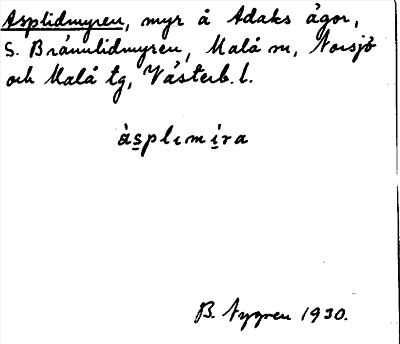 Asplidmyren, myr å Adaks ägor,
S. Brännlidmyren, Malå sn, Norsjö
och Malå tg, Västerb. l.
àsplımíra
B. Nygren 1930.